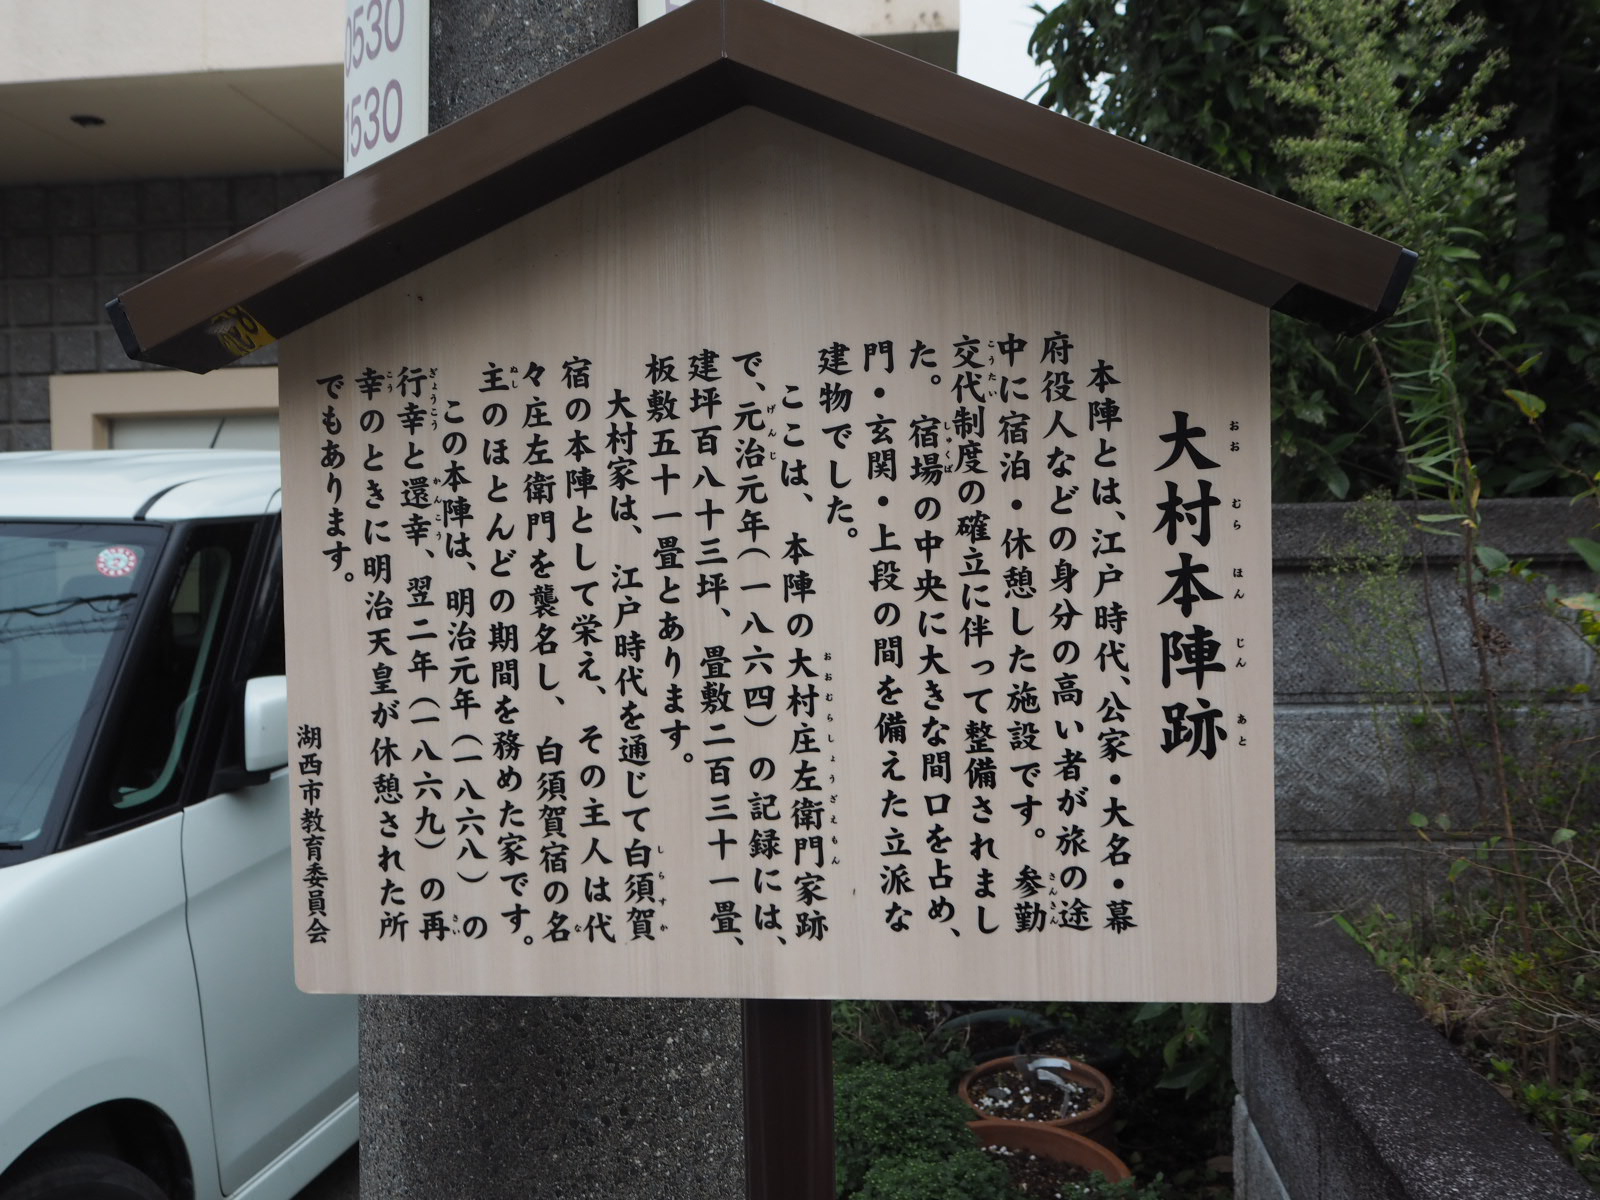 大村本陣跡
おお むら ほん じん あと
本陣とは、江戸時代、公家・大名・幕
府役人などの身分の高い者が旅の途
中に宿泊・休憩した施設です。参勤
さんきん
交代制度の確立に伴って整備されまし
こうたい
た。宿場の中央に大きな間口を占め、
しゅくば
門・玄関・上段の間を備えた立派な
建物でした。
ここは、本陣の大村庄左衛門家跡
おおむらしょうざえもん
で、元治元年(一八六四)の記録には、
げんじ
建坪百八十三坪、畳敷二百三十一畳、
板敷五十一畳とあります。
大村家は、江戸時代を通じて白須賀
しらすか
宿の本陣として栄え、その主人は代
々庄左衛門を襲名し、白須賀宿の名
な
主のほとんどの期間を務めた家です。
ぬし
この本陣は、明治元年(一八六八)の
行幸と還幸、翌二年(一八六九)の再
ぎょうこう かんこう さい
幸のときに明治天皇が休憩された所
こう
でもあります。
湖西市教育委員会
0530
1530